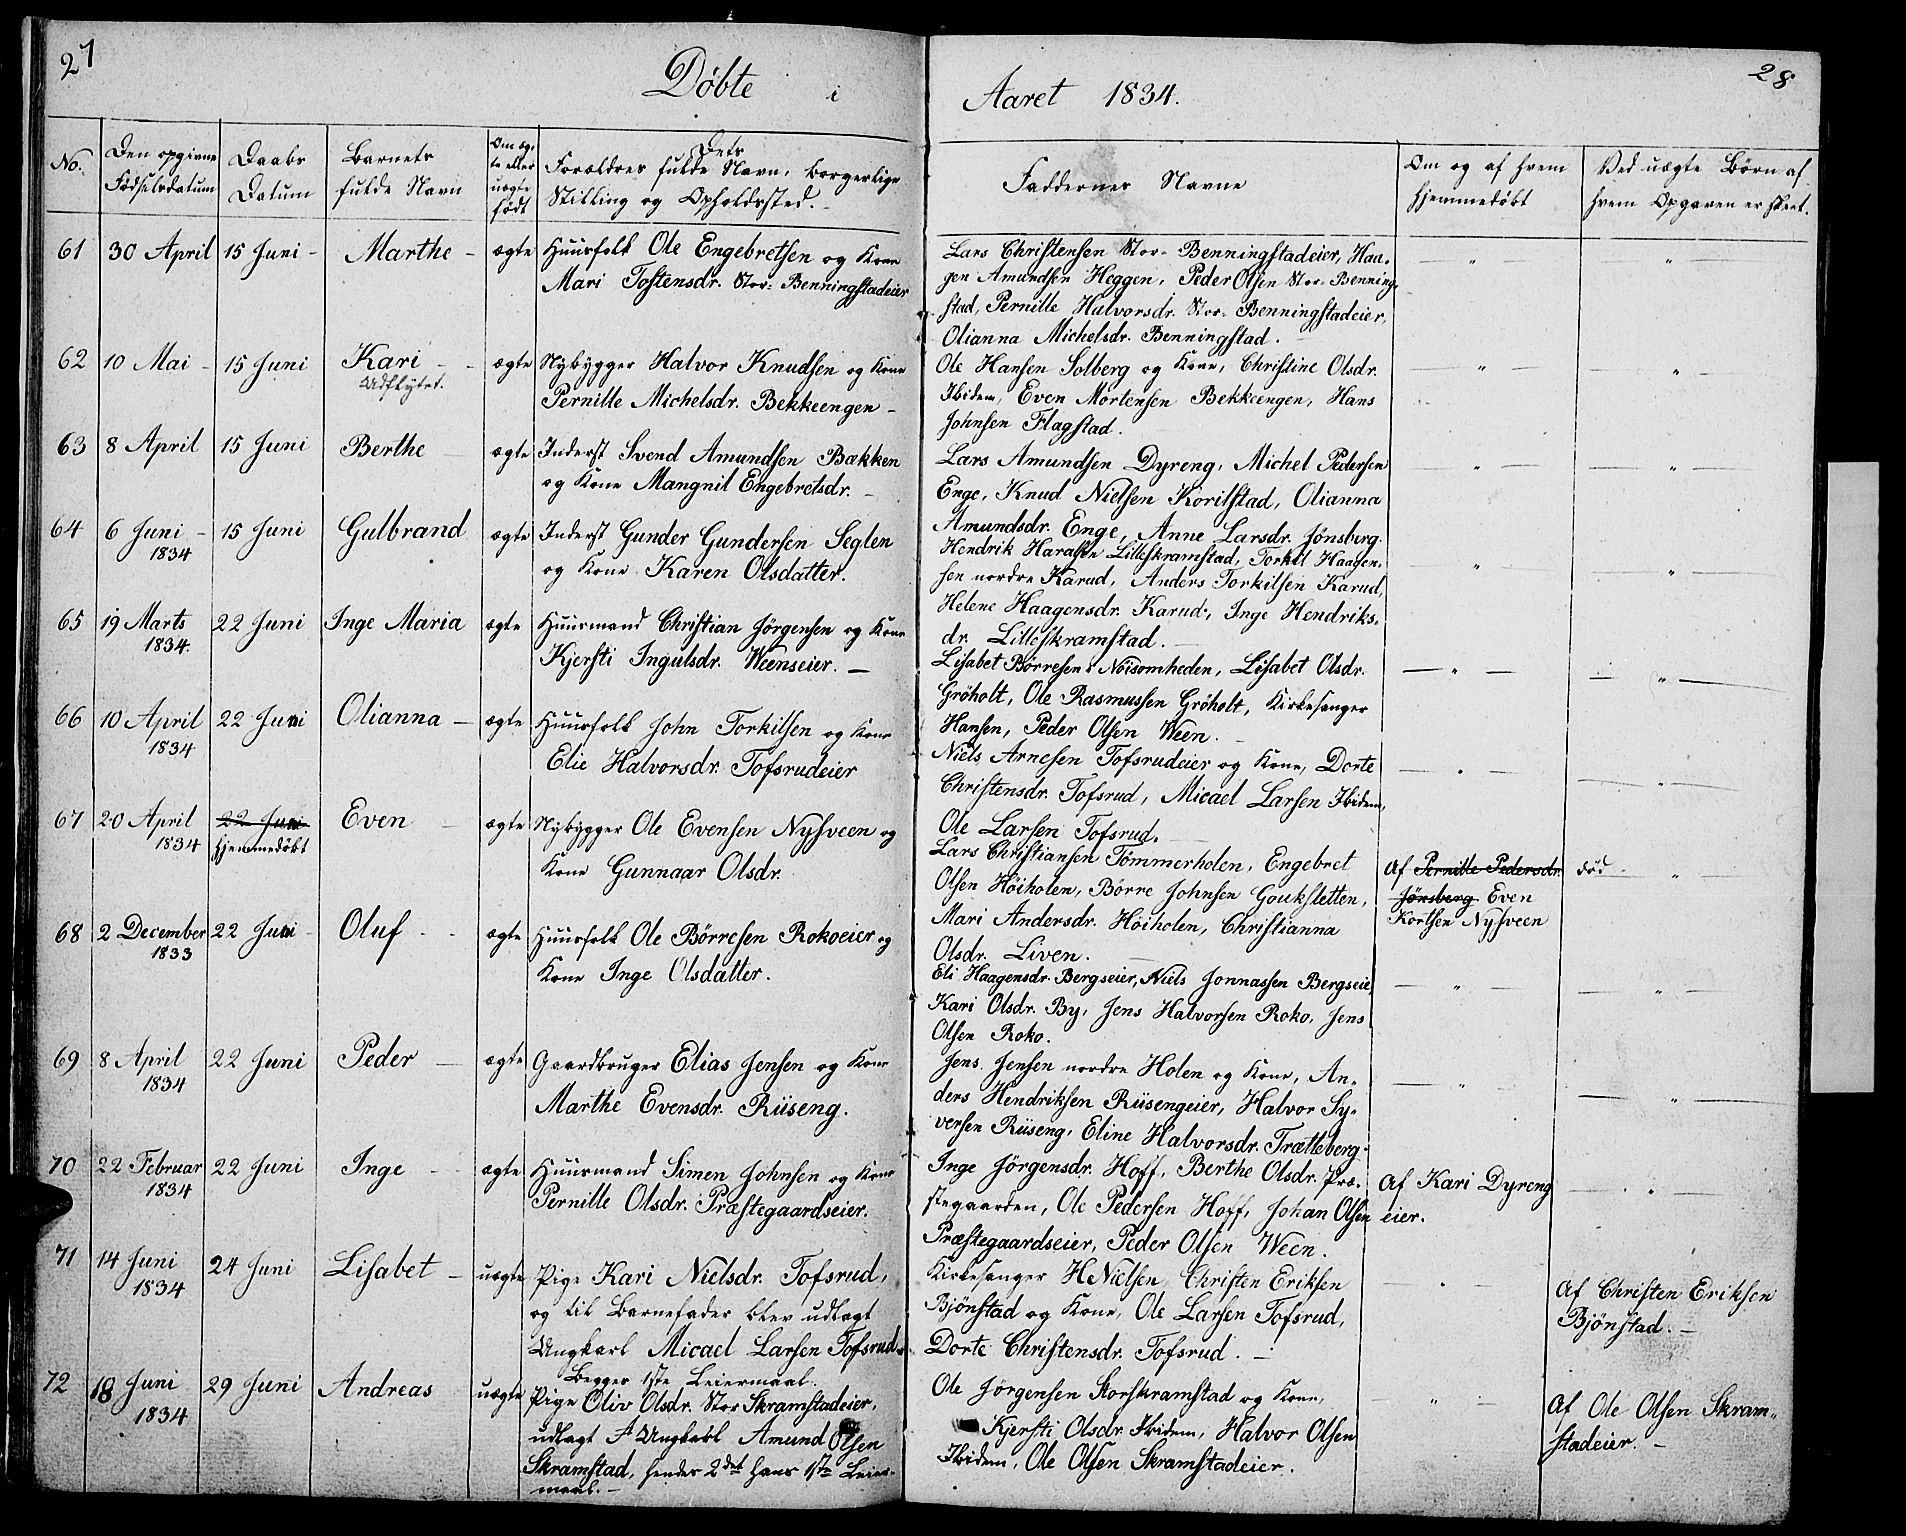 27
Døbte i
Aaret 1834.
28
No.
Den opgivne
Fødselsdatum
Daabs
Datum
Barnets
fulde Navn
Om æg-
te eller
uægte
født
Dets
Forældres fulde Navn, borgerlige
Stilling og Opholdssted.
Faddernes Navne
Om og af hvem
hjemmedøbt
Ved uægte Børn af
hvem Opgaven er skeet.
61
30 April
15 Juni -
Marthe -
ægte
Huusfolk Ole Engebretsen og Kone
Mari Tostensdr. Stor-Benningstadeier
Lars Christensen Stor-Benningstadeier, Haa-
gen Amundsen Heggen, Peder Olsen Stor-Benning-
stad, Pernille Halvorsdr. Stor-Benningstadeier,
Olianna Michelsdr. Benningstad.
62
10 Mai -
15 Juni
Kari -
Udflytet.
ægte
Nybygger Halvor Knudsen og Kone
Pernille Michelsdr. Bekkeengen -
Ole Hansen Solberg og Kone, Christine Olsdr.
Ibidem, Even Mortensen Bekkeengen, Hans
Johnsen Flagstad.
63
8 April
15 Juni
Berthe -
ægte
Inderst Svend Amundsen Bækken
og Kone Mangnil Engebretsdr. -
Lars Amundsen Dyreng, Michel Pedersen
Enge, Knud Nielsen Korilstad, Olianna
Amundsdr. Enge, Anne Larsdr. Jønsberg.
64
6 Juni -
1834
15 Juni
Gulbrand
ægte
Inderst Gunder Gundersen Seglen
og Kone Karen Olsdatter.
Hendrik Haralsen Lilleskramstad, Torkil Haagen-
sen nordre Karud, Anders Torkilsen Karud,
Helene Haagensdr. Karud, Inge Hendriks-
dr. Lilleskramstad. -
65
19 Marts
1834.
22 Juni
Inge Maria
ægte
Huusmand Christian Jørgensen og Kone
Kjersti Ingulsdr. Weenseier. -
Lisabet Børresen i Nøisomheden, Lisabet Olsdr.
Grøholt, Ole Rasmussen Grøholt, Kirkesanger
Hansen, Peder Olsen Ween. -
66
10 April
1834
22 Juni
Olianna -
ægte
Huusfolk John Torkilsen og Kone
Elie Halvorsdr. Tofsrudeier
Niels Arnesen Tofsrudeier og Kone, Dorte
Christensdr. Tofsrud, Micael Larsen Ibidem,
Ole Larsen Tofsrud.
67
20 April
1834
22 Juni
hjemmedøbt
Even -
ægte
Nybygger Ole Evensen Nysveen og
Kone Gunnaar Olsdr.
Lars Christiansen Tømmerholen, Engebret
Olsen Høiholen, Børre Johnsen Goukstetten,
Mari Andersdr. Høiholen, Christianna
Olsdr. Liven. -
Af Pernille Pedersdr.
Jønsberg Even
Kortsen Nysveen
død
68
2 December
1833
22 Juni -
Oluf -
ægte
Huusfolk Ole Børresen Rokoeier og
Kone Inge Olsdatter.
Eli Haagensdr. Bergseier, Niels Jonnassen Bergseie,
Kari Olsdr. By, Jens Halvorsen Roko, Jens
Olsen Roko.
69
8 April
1834
22 Juni
Peder -
ægte
Gaardbruger Elias Jensen og Kone
Marthe Evensdr. Riiseng.
Jens Jensen nordre Holen og Kone, An-
ders Hendriksen Riisengeier, Halvor Sy-
versen Riiseng, Eline Halvorsdr. Trætteberg.
70
22 Februar
1834
22 Juni
Inge -
ægte
Huusmand Simen Johnsen og Kone
Pernille Olsdr. Præstegaardseier.
Inge Jørgensdr. Hoff, Berthe Olsdr. Præ-
stegaarden, Ole Pedersen Hoff, Johan Olsen
Præstegaardseier, Peder Olsen Ween.
Af Kari Dyreng
eier.
71
14 Juni
1834
24 Juni
Lisabet -
uægte
Pige Kari Nielsdr. Tofsrud,
og til Barnefader blev udlagt
Ungkarl Micael Larsen Tofsrud.
Begges 1ste Leiermaal.
Kirkesanger HNielsen, Christen Eriksen
Bjønstad og Kone, Ole Larsen Tofsrud,
Dorte Christensdr. Tofsrud. -
Af Christen Eriksen
Bjønstad. -
72
18 Juni
1834
29 Juni
Andreas
uægte
Pige Oliv Olsdr. Stor Skramstadeier,
udlagt Ungkarl Amund Olsen
Skramstad, hendes 2det hans 1ste Leier-
maal. -
Ole Jørgensen Storskramstad og Kone,
Kjersti Olsdr. Ibidem, Halvor Olsen
Ibidem, Ole Olsen Skramstadeier.
Af Ole Olsen Skram-
stadeier. -